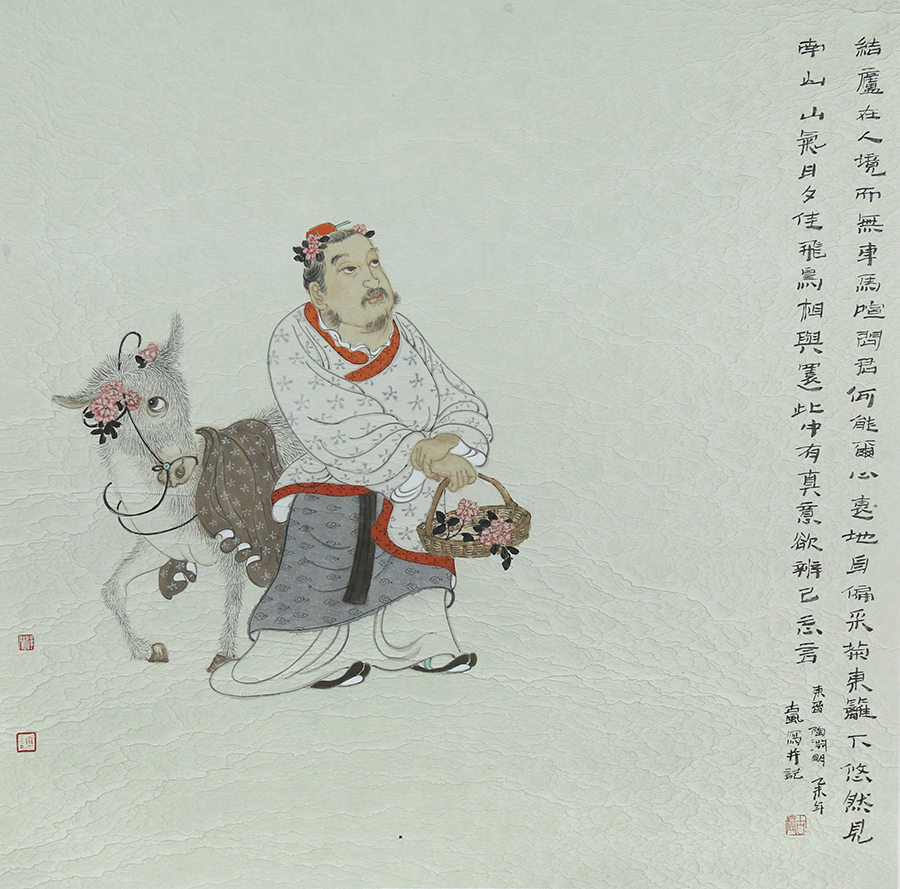 結廬在人境而無車馬喧問君何能爾心遠地自偏采菊東籬下悠然見
南山山氣日夕佳飛鳥相與還此中有真意欲辨已忘言
東晉陶淵明 乙未年
寫并記